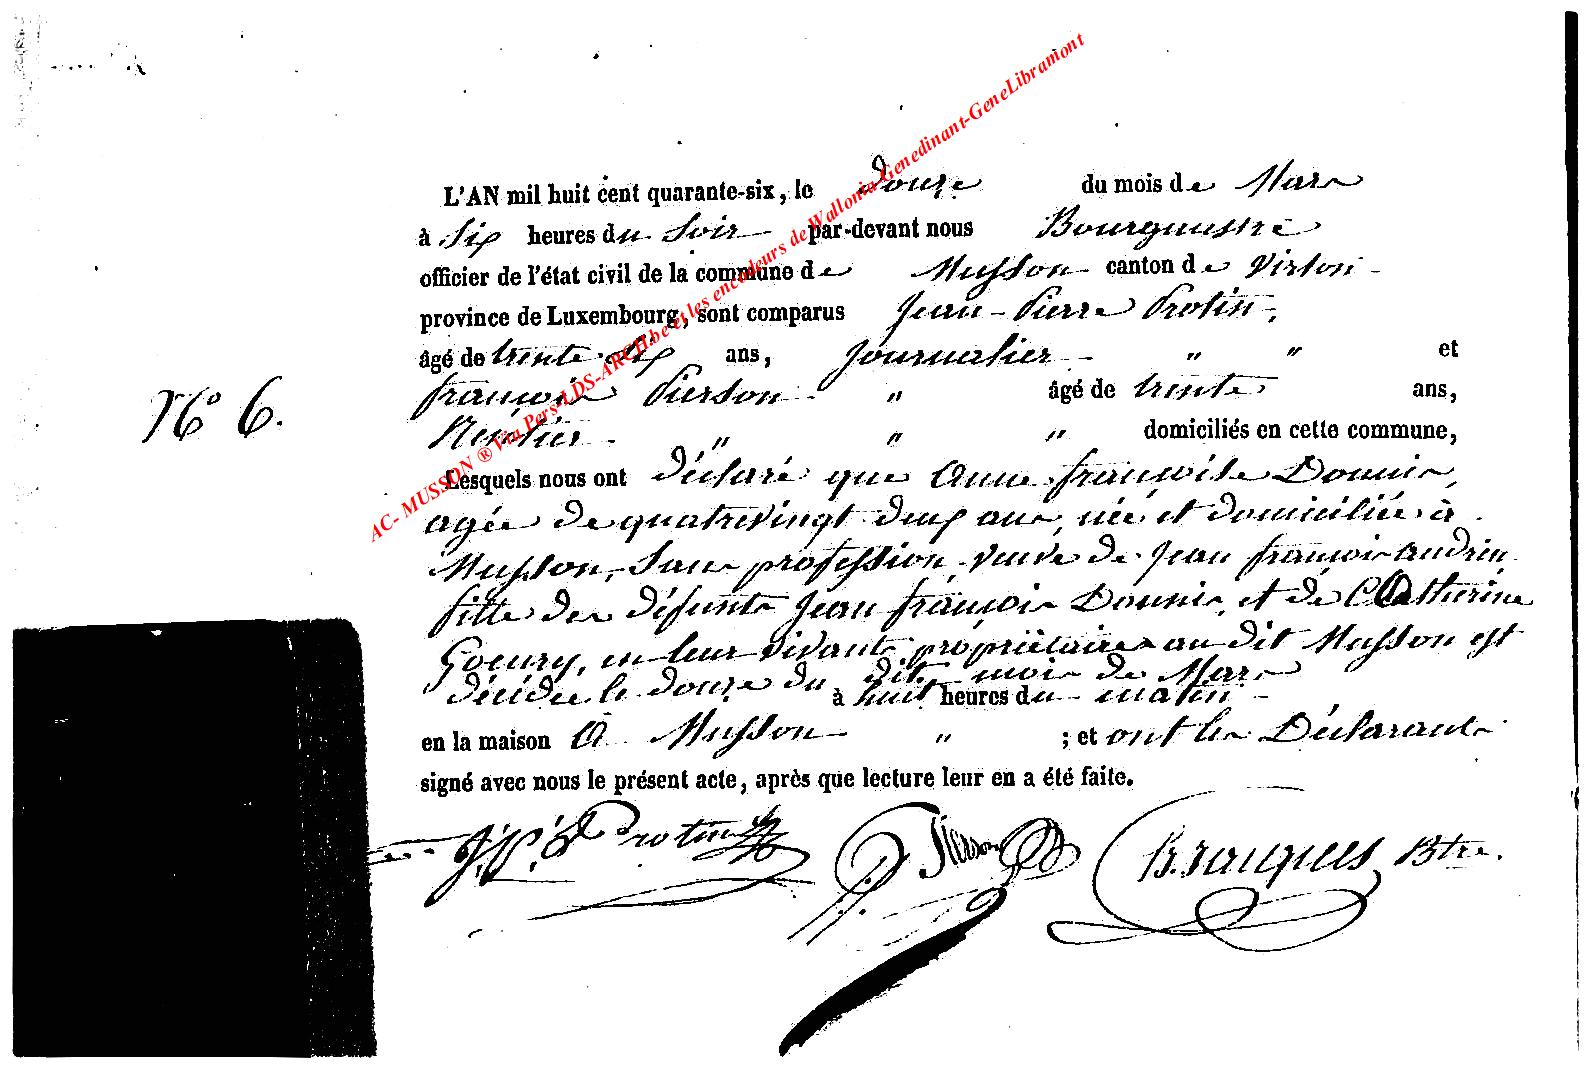 L'AN mil huit cent quarante-six, le douze du mois de Mars
à six heures du soir par-devant nous Bourgmestre
officier de l'état civil de la commune de Musson canton de Virton
province de Luxembourg, sont comparus Jean-Pierre Protin,
âgé de trente six ans, journalier " " et
N° 6.
françois Pierson " âgé de trente ans,
Rentier " " " domiciliés en cette commune,
Lesquels nous ont déclaré que Anne françoise Donnis,
agée de quatrevingt deux ans, née et domiciliée à
Musson, sans profession, veuve de Jean françois
fille des défunts Jean françois Donnis, et de Catherine
Goeury, en leur vivants propriétaires au dit Musson est
décédée le douze du dit mois de Mars
à huit heures du matin
en la maison à Musson " ; et ont les Déclarants
signé avec nous le présent acte, après que lecture leur en a été faite.
J. P. Protin Pierson Btre.
AC- MUSSON ® Via Pers-LDS-ARCH.be et les encodeurs de Wallonia Genedinant-GeneLibramont